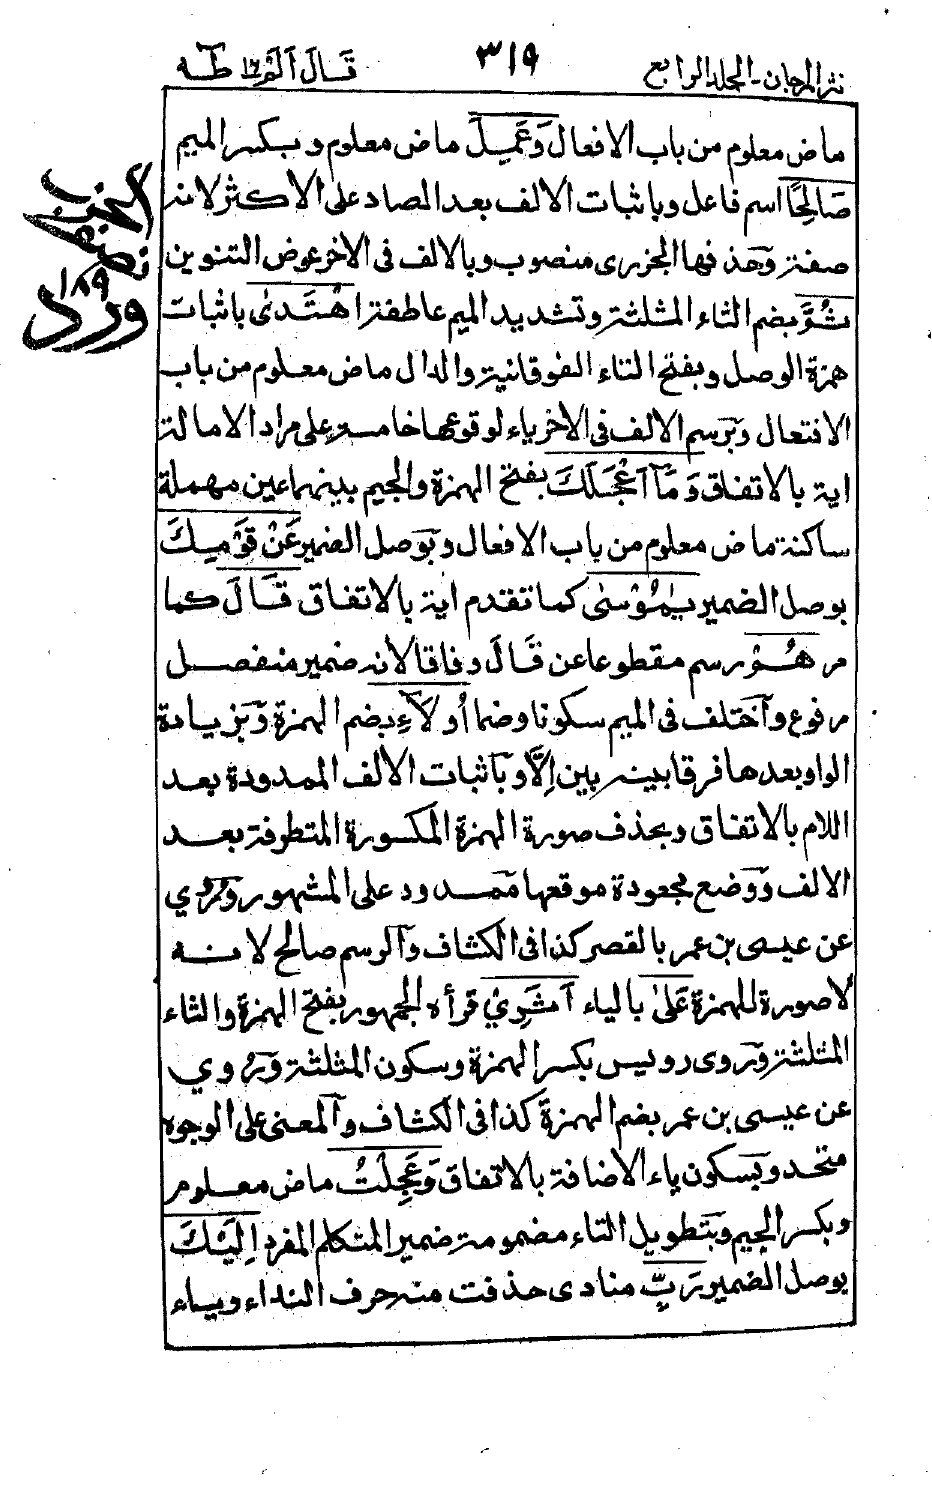 نثر المرجان - المجلد الرابع ٣١٩ قَالَ اَلَمْ ١٦ طٰهٰ
ماض معلوم من باب الافعال وَعَمِلَ ماض معلوم وبكسر الميم
صَالِحًا اسم فاعل وباثبات الالف بعد الصاد على الاكثر لانه
صفة وَحذفها الجزرى منصوب وبالالف فى الاخر عوض التنوين
ثُمَّ بضم الثاء المثلثة وتشديد الميم عاطفة اهْتَدٰى باثبات
همزة الوصل وبفتح التاء الفوقانية والدال ماض معلوم من باب
الافتعال وَبرسم الالف فى الاخر ياء لوقوعها خامسة على مراد الامالة
اية بالاتفاق وَمَآ اَعْجَلَكَ بفتح الهمزة والجيم بينهما عين مهملة
ساكنة ماض معلوم من باب الافعال وبوصل الضمير عَنْ قَوْمِكَ
بوصل الضمير يٰمُوْسٰى كما تقدم اية بالاتفاق قَالَ كما
مر هُمْ رسم مقطوعا عن قَالَ وفاقا لانه ضمير منفصل
مرفوع وَاختلف فى الميم سكونا وضما اُولَآءِ بضم الهمزة وَبزيادة
الواو بعدها فرقا بينه بين اِلَّا وَباثبات الالف الممدودة بعد
اللام بالاتفاق وبحذف صورة الهمزة المكسورة المتطرفة بعد
الالف وَوضع مجعودة موقعها ممدود على المشهور وَرُوي
عن عيسى بن عمر بالقصر كذا فى الكشاف وَالرسم صالح لانه
لا صورة للهمزة عَلٰى بالياء اَثَرِيْ قرأه الجمهور بفتح الهمزة والثاء
المثلثة وَروى رويس بكسر الهمزة وسكون المثلثة وَرُوي
عن عيسى بن عمر بضم الهمزة كذا فى الكشاف وَالمعنى على الوجوه
متحد وَبسكون ياء الاضافة بالاتفاق وَعَجِلْتُ ماض معلوم
وبكسر الجيم وبتطويل التاء مضمومة ضمير المتكلم المفرد اِلَيْكَ
بوصل الضمير رَبِّ منادى حذفت منه حرف النداء وياء
الحزب
نصف
١٨٩
ورد